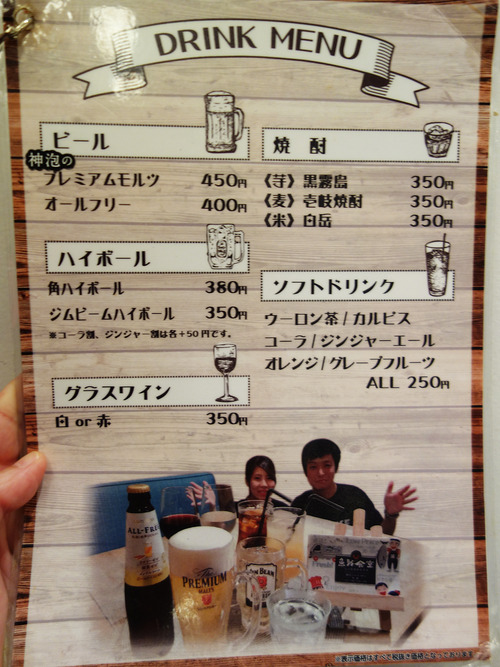 DRINK MENU
ビール
神泡の
プレミアムモルツ 450円
オールフリー 400円
ハイボール
角ハイボール 380円
ジムビームハイボール 350円
※コーラ割、ジンジャー割は各+50円です。
グラスワイン
白 or 赤 350円
焼 酎
《芋》黒霧島 350円
《麦》壱岐焼酎 350円
《米》白岳 350円
ソフトドリンク
ウーロン茶 / カルピス
コーラ / ジンジャーエール
オレンジ / グレープフルーツ
ALL 250円
ALL-FREE
The PREMIUM MALT'S
JIM BEAM
※表示価格はすべて税抜き価格となっております